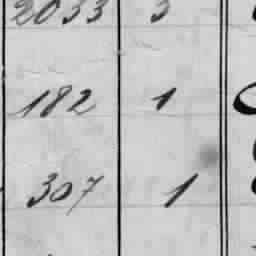 2033 3
182 1
307 1